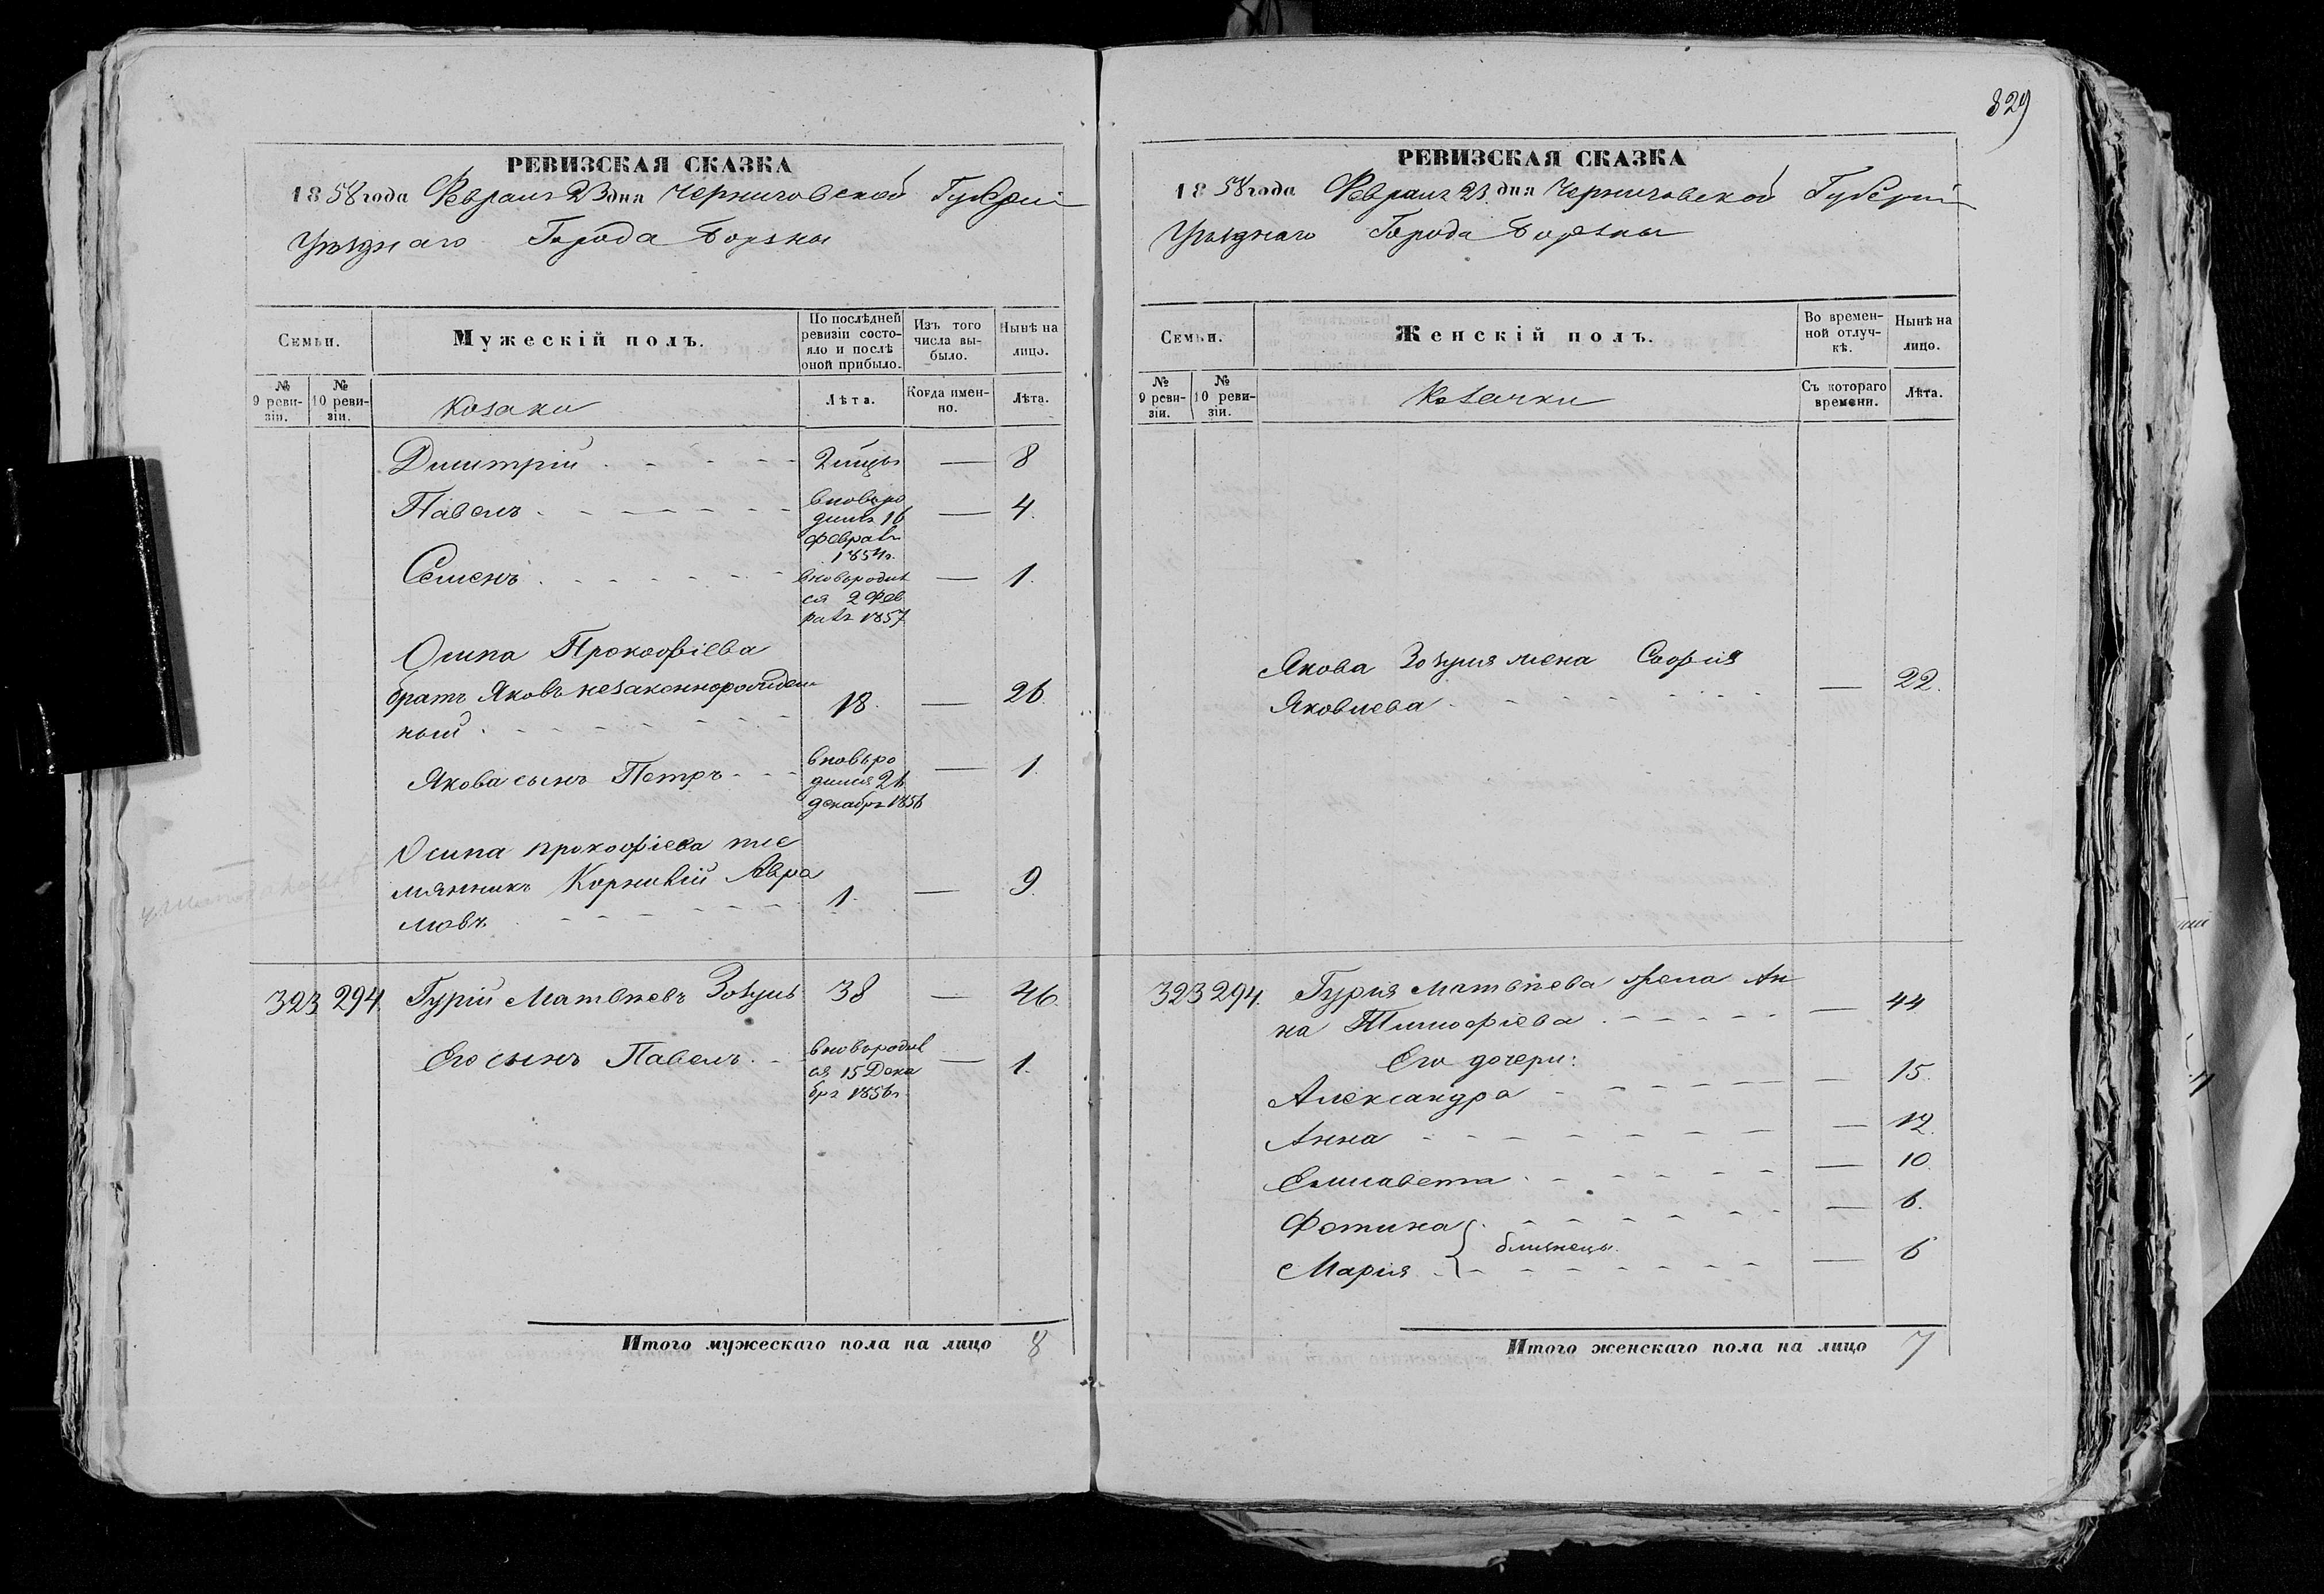 829
РЕВИЗСКАЯ СКАЗКА
1858 года Февраля 23 дня Черниговской Губерніи
Уѣзднаго Города Борзны
Семьи.
Мужескій полъ.
По послѣдней ревизіи состояло и послѣ оной прибыло.
Изъ того числа выбыло.
Нынѣ на лицо.
№ 9 ревизіи.
№ 10 ревизіи.
Козаки
Лѣта.
Когда именно.
Лѣта.
Димитрій 8
Павелъ 4.
вновьро
дился 16
февраля
1854г.
Семенъ 1.
вновьродил
ся 2 Фев
рал 1857
Осипа Прокофіева
братъ Яковъ незаконнорожден
ный 18. 26.
Якова сынъ Петръ 1.
вновьро
дился 26
декабря 1856
Осипа Прокофіева пле
мянникъ Корнилій Авра
мовъ 1. 9.
323 294. Гурій Матвѣевъ Зозуль 38 46.
Его сынъ Павелъ 1.
вновьродил
ся 15 Дека
бря 1856г
Итого мужескаго пола на лицо 8
РЕВИЗСКАЯ СКАЗКА
1858 года Февраля 23 дня Черниговской Губерніи
Уѣзднаго Города Борзны
Семьи.
Женскій полъ.
Во временной отлучкѣ.
Нынѣ на лицо.
№ 9 ревизіи.
№ 10 ревизіи.
Козачки
Съ котораго времени.
Лѣта.
Якова Зозуля жена Софія
Яковлева 22.
323 294. Гурія Матвѣева жена Ан
на Тимофіева 44
Его дочери:
Александра 15.
Анна 12.
Елисавета 10.
Фотина 6.
близнецы.
Марія 6
Итого женскаго пола на лицо 7